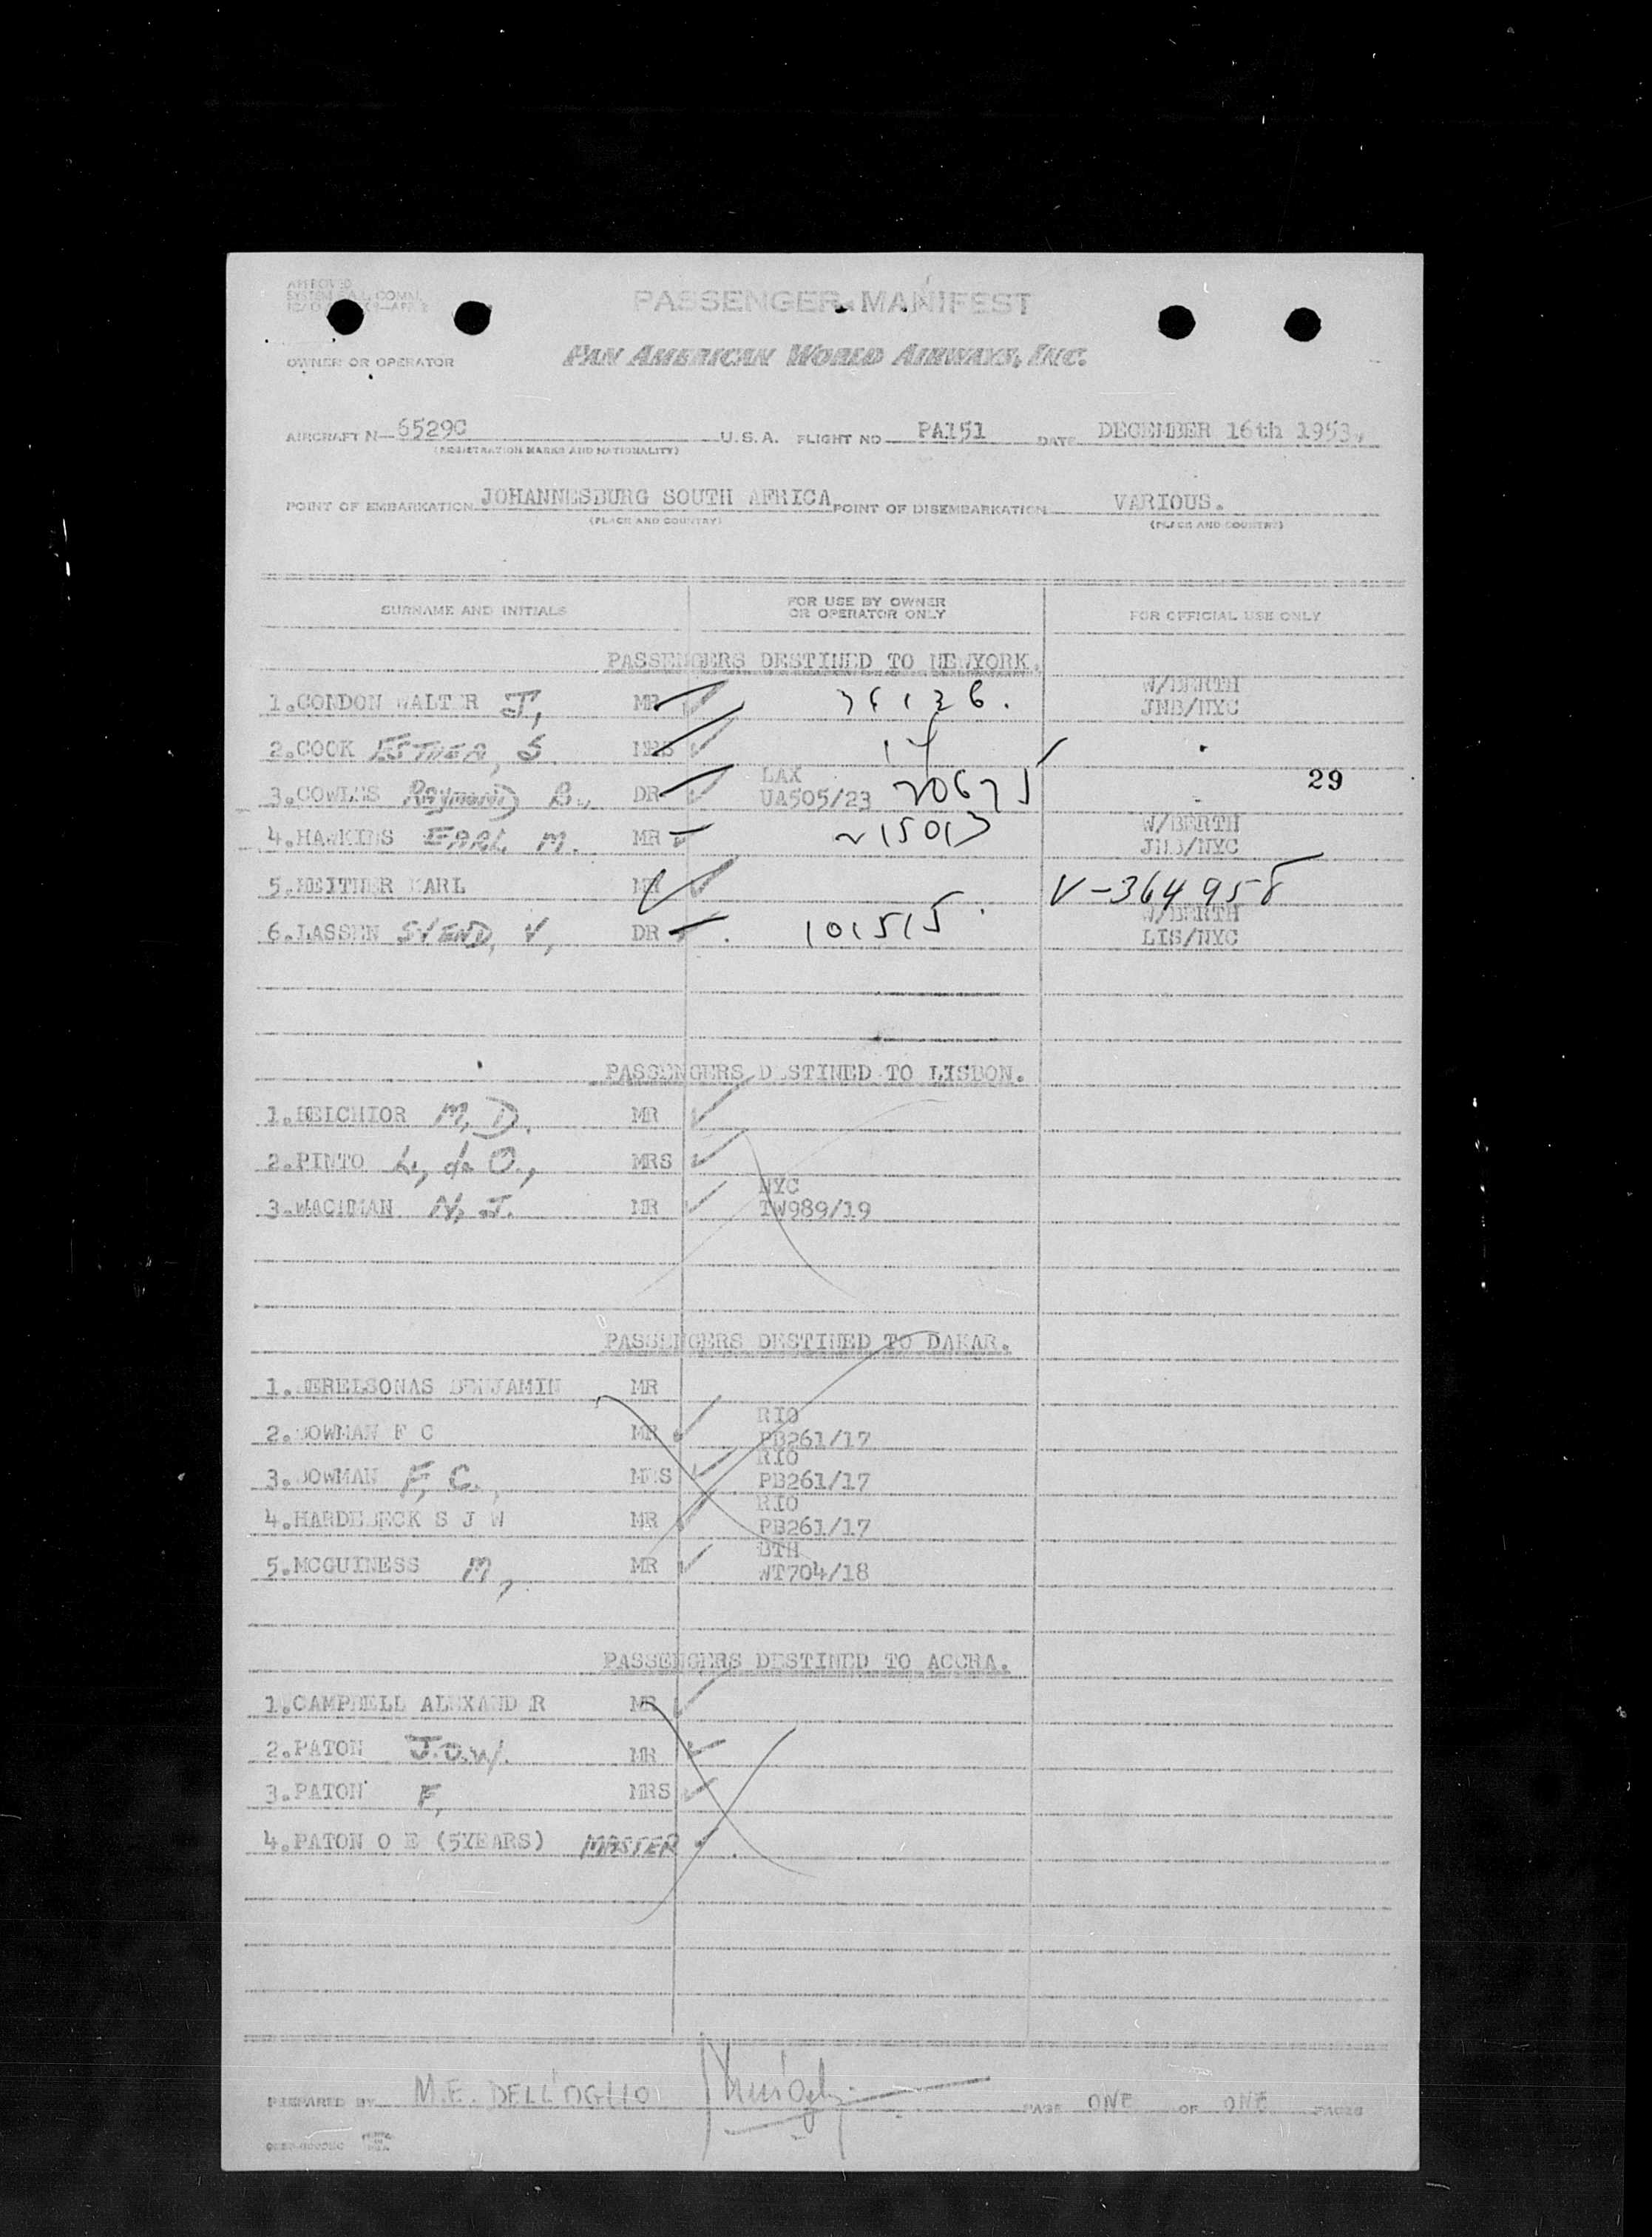 APPROVED
PASSENGER MANIFEST
OWNER OR OPERATOR PAN AMERICAN WORLD AIRWAYS, INC.
AIRCRAFT N- 65290 U.S.A. FLIGHT NO PA151 DATE DECEMBER 16th 1953.
(REGISTRATION MARKS AND NATIONALITY)
POINT OF EMBARKATION JOHANNESBURG SOUTH AFRICA POINT OF DISEMBARKATION VARIOUS.
(PLACE AND COUNTRY) (PLACE AND COUNTRY)
SURNAME AND INITIALS
FOR USE BY OWNER
OR OPERATOR ONLY
FOR OFFICIAL USE ONLY
PASSENGERS DESTINED TO NEWYORK.
W/BERTH
1.CONDON WALTER J, MR JNB/NYC
2.COOK ESTHER, S MRS 14
LAX 29
3.COWLES RAYMOND B., DR UA505/23 20675
W/BERTH
4.HAWKINS EARL M. MR 215013 JNB/NYC
5. KARL MR V-364958
W/BERTH
6.LASSEN SVEND, V, DR 101515 LIS/NYC
PASSENGERS DESTINED TO LISBON.
1.MELCHIOR M, D. MR
2.PINTO L, de O., MRS
NYC
3.WACHMAN N, J. MR TW989/19
PASSENGERS DESTINED TO DAKAR.
1. BENJAMIN MR
RIO
2.BOWMAN F C MR PB261/17
RIO
3.BOWMAN F, C., MRS PB261/17
RIO
4.HARDEBECK S J W MR PB261/17
BTH
5.MCGUINESS M, MR WT704/18
PASSENGERS DESTINED TO ACCRA.
1.CAMPBELL ALEXANDER MR
2.PATON J.O.W. MR
3.PATON F, MRS
4.PATON O E (5YEARS) MASTER
PREPARED BY M.E. DELL'OGLIO PAGE ONE OF ONE PAGES